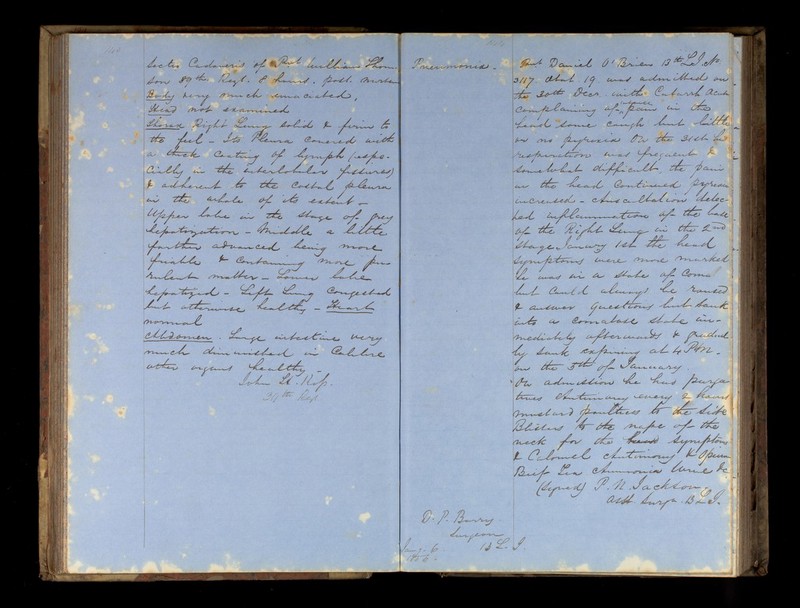 Sectio Cadaveris of Pvt William Thom
son 89th Regt. 6 hours post mortem
Body very much emaciated,
Head not examined
Thorax Right Lung solid & firm to
the feel - Its Pleura covered with
a thick coating of lymph (espe-
cially in the interlobular fissures)
& adherent to the Costal pleura
in the whole of its extent -
Upper lobe in the stage of grey
hepatization - Middle a little
further advanced being more
friable & containing more pu
rulent matter - Lower lobe
hepatized - Left Lung congested
but otherwise healthy - Heart
normal
Abdomen. Large intestine very
much diminished in Calibre
other organs healthy
John
Pneumonia.
Pvt Daniel O'Brien 13th L.I. No
3117 aetat 19 was admitted on
the 30th Decr with Catarrh Acute
complaining of pain in the
head some cough but little
or no pyrexia On the 31st the
respiration was frequent &
somewhat difficult the pain
in the head continued pyrexia
increased - auscultation detec
ted inflammation of the base
of the Right Lung in the 2nd
stage January 1st the head
symptoms were more marked
he was in a state of Coma
but could always be roused
& answer questions but sank
into a comatose state im-
mediately afterwards & gradual
ly sank expiring at 4 P.M.
on the 5th of January
On admission he had purga
tives Antimony every 2 hours
mustard poultices to the side
Blisters to the nape of the
neck for the head symptoms
& Calomel Antimony & Opium
Beef Tea Ammonia Wine &c
(Signed) P. N. Jackson
Asst Surgn 13 L.I.
D. P. Barry
Surgeon
13 L. I.